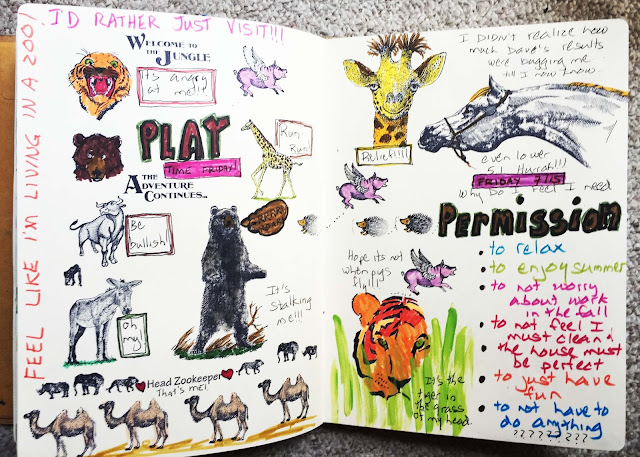 I'D RATHER JUST VISIT!!!
FEEL LIKE I'M LIVING IN A ZOO!
WELCOME TO THE
JUNGLE
It's angry
at me!!!
PLAY
TIME FRIDAY!
Run
Run!
THE
ADVENTURE
CONTINUES...
Be
bullish!
oh
my!
It's
stalking
me!!!
Head Zookeeper
That's me!
I DIDN'T realize how
much Dave's results
were bugging me
till I now know.
Relief!!!!
even lower
5.1 Hurrah!!!)
FRIDAY 7/15
Why Do I Feel I need
PERMISSION
Hope its not
when pygs
fly!!!
It's the
tiger in
the grass
of my head.
• to relax
• to enjoy summer
• to not worry
about work
in the fall
• to not feel I
must clean &
the house must
be perfect
• to just have
fun
• to not have to
do anything
????????